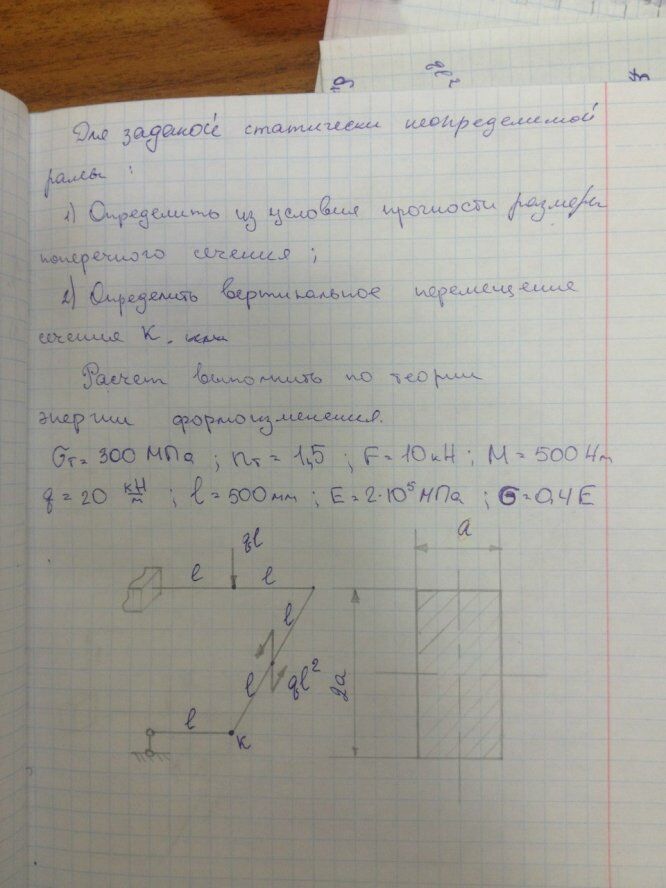 ql²
Для заданой статически неопределимой
рамы :
1) Определить из условия прочности размеры
поперечного сечения ;
2) Определить вертикальное перемещение
сечения К.
Расчет выполнить по теории
энергии формоизменения.
σт = 300 МПа ; nт = 1,5 ; F = 10 кН ; M = 500 Нм
q = 20 кН/м ; l = 500 мм ; E = 2·10⁵ МПа ; G = 0,4 E
ql
a
l
l
l
ql²
l
2a
l
K